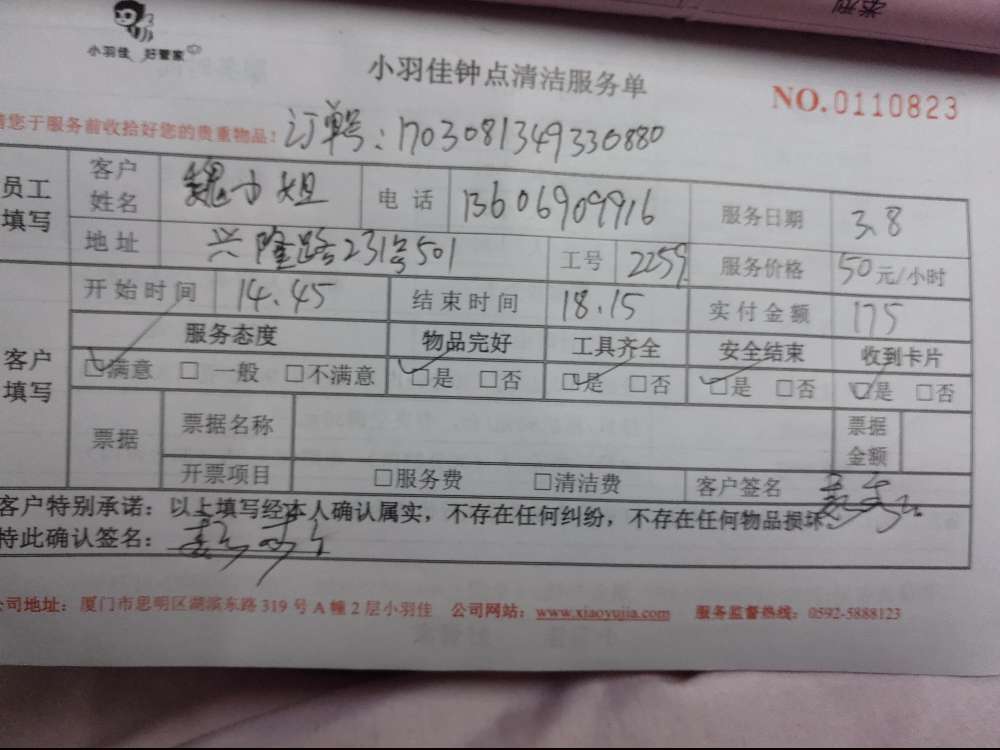 类型
小羽佳 好管家
小羽佳钟点清洁服务单
NO.0110823
请您于服务前收拾好您的贵重物品！ 订单号：1703081349330880
员工填写 客户姓名 魏小姐 电话 13606909916 服务日期 3.8
地址 兴隆路231号501 工号 2259 服务价格 50元/小时
客户填写 开始时间 14.45 结束时间 18.15 实付金额 175
服务态度 物品完好 工具齐全 安全结束 收到卡片
☑满意 □一般 □不满意 ☑是 □否 ☑是 □否 ☑是 □否 ☑是 □否
票据 票据名称 票据金额
开票项目 □服务费 □清洁费 客户签名
客户特别承诺：以上填写经本人确认属实，不存在任何纠纷，不存在任何物品损坏。
特此确认签名：
公司地址：厦门市思明区湖滨东路319号A幢2层小羽佳 公司网站：www.xiaoyujia.com 服务监督热线：0592-5888123